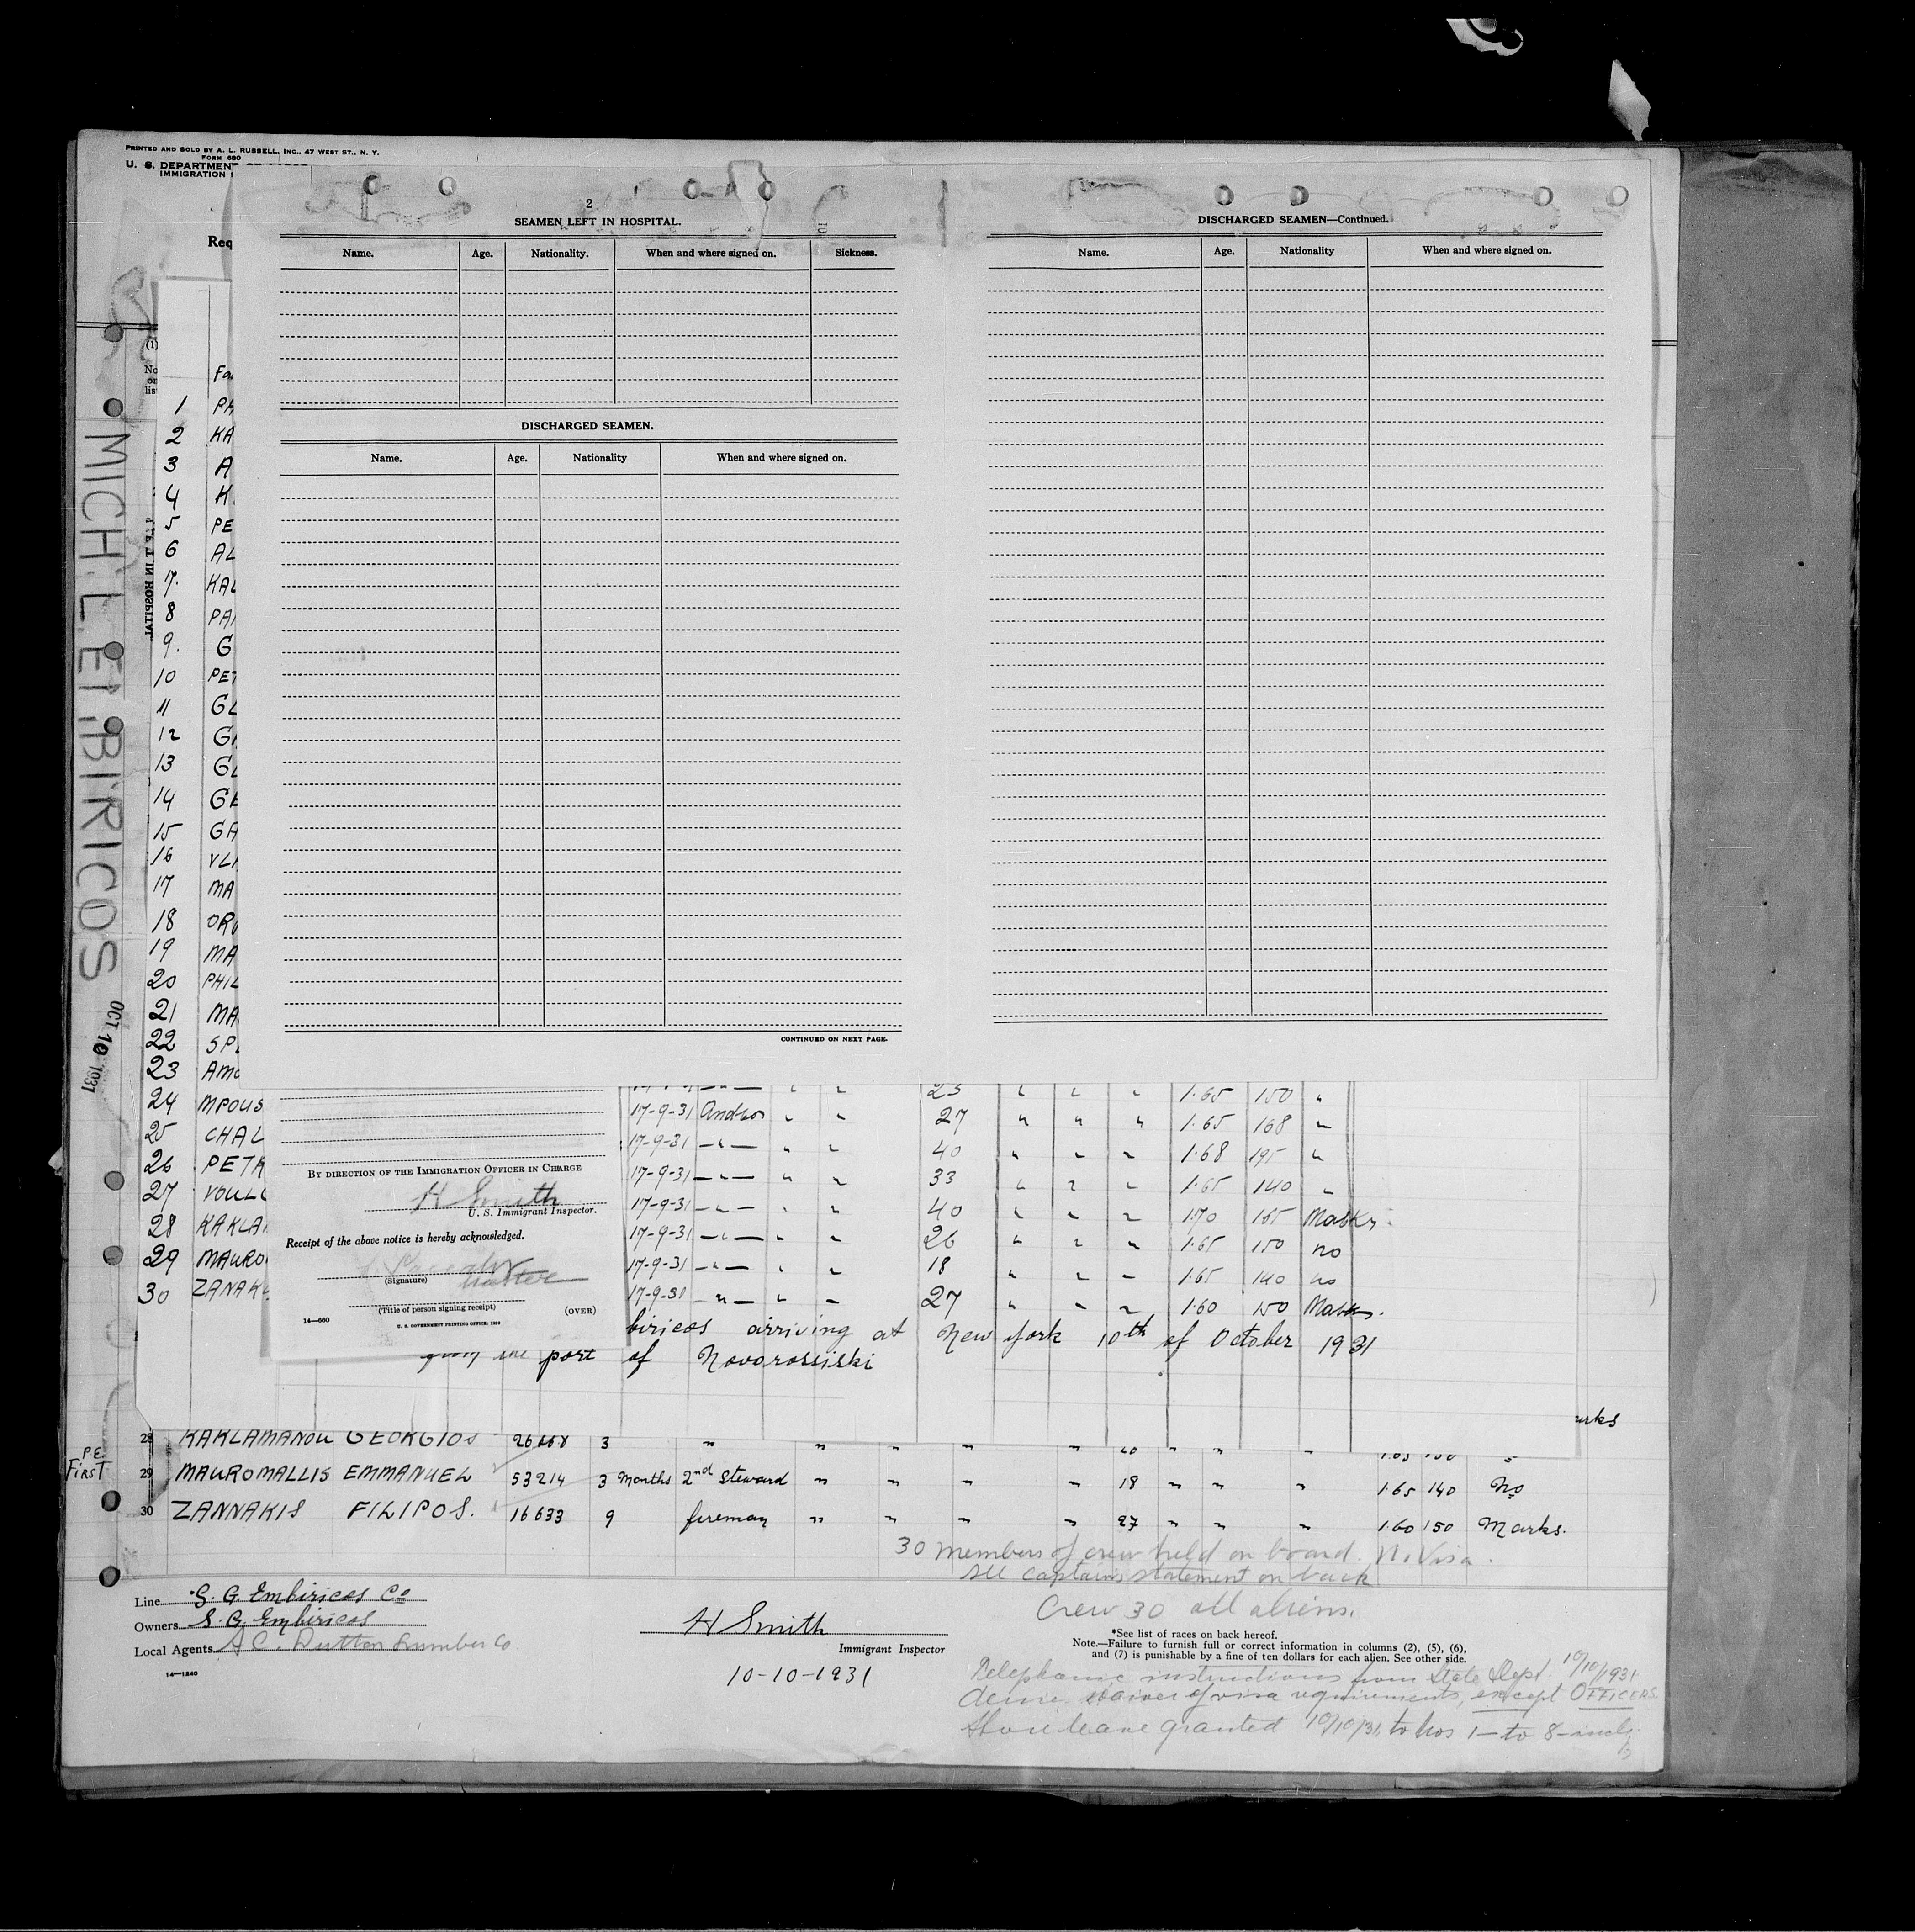 PRINTED AND SOLD BY A. L. RUSSELL, INC., 47 WEST ST., N. Y.
FORM 680
U. S. DEPARTMENT
IMMIGRATION
Req
MICH. L. EMBIRICOS
OCT 10 1931
2
SEAMEN LEFT IN HOSPITAL.
Name. Age. Nationality. When and where signed on. Sickness.
DISCHARGED SEAMEN.
Name. Age. Nationality When and where signed on.
CONTINUED ON NEXT PAGE.
DISCHARGED SEAMEN—Continued.
Name. Age. Nationality When and where signed on.
(1)
No
on
lis
Fa
1 PH
2 KA
3 A
4 K
5 PE
6 AL
7. KAL
8 PA
9. G
10 PET
11 GL
12 G
13 GL
14 GE
15 GA
16 VL
17 MA
18 OR
19 MA
20 PHIL
21 MA
22 SP
23 AMO
24 MPOUS
25 CHAL
26 PETR
27 VOUL
28 KAKLA
29 MAURO
30 ZANAK
LEFT IN HOSPITAL.
23 " " " 1·65 150 "
17-9-31 Andros " " 27 " " " 1·65 168 "
17-9-31 —"— " " 40 " " " 1·68 195 "
17-9-31 —"— " " 33 " " " 1·65 140 "
17-9-31 —"— " " 40 " " " 1·70 165 Marks.
17-9-31 —"— " " 26 " " " 1·65 150 no
17-9-31 —"— " " 18 " " " 1·65 140 no
17-9-31 —"— " " 27 " " " 1·60 150 Marks.
BY DIRECTION OF THE IMMIGRATION OFFICER IN CHARGE
H Smith
U. S. Immigrant Inspector.
Receipt of the above notice is hereby acknowledged.
Master
(Signature)
(Title of person signing receipt) (OVER)
14—680 U. S. GOVERNMENT PRINTING OFFICE: 1930
biricos arriving at New york 10th of October 1931
port of Novorossiski
arks
28 KAKLAMANOU GEORGIOS 3 " " " " "
P.E. FIRST
29 MAUROMALLIS EMMANUEL 53214 3 Months 2nd Steward " " " " 18 " " " 1·65 140 No
30 ZANNAKIS FILIPOS. 16633 9 fireman " " " " 27 " " " 1·60 150 Marks.
30 members of crew held on board. No Visa.
See Captains statement on back
Crew 30 all aliens.
Line S. G. Embiricos Co
Owners S. G. Embiricos
Local Agents A C. Dutton Lumber Co
14—1240
H Smith
Immigrant Inspector
10-10-1931
*See list of races on back hereof.
Note.—Failure to furnish full or correct information in columns (2), (5), (6),
and (7) is punishable by a fine of ten dollars for each alien. See other side.
Telephonic instructions from State Dept. 10/10/1931
waiver of visa requirements, except OFFICERS
Shore leave granted 10/10/31. to Nos 1— to 8—incl.